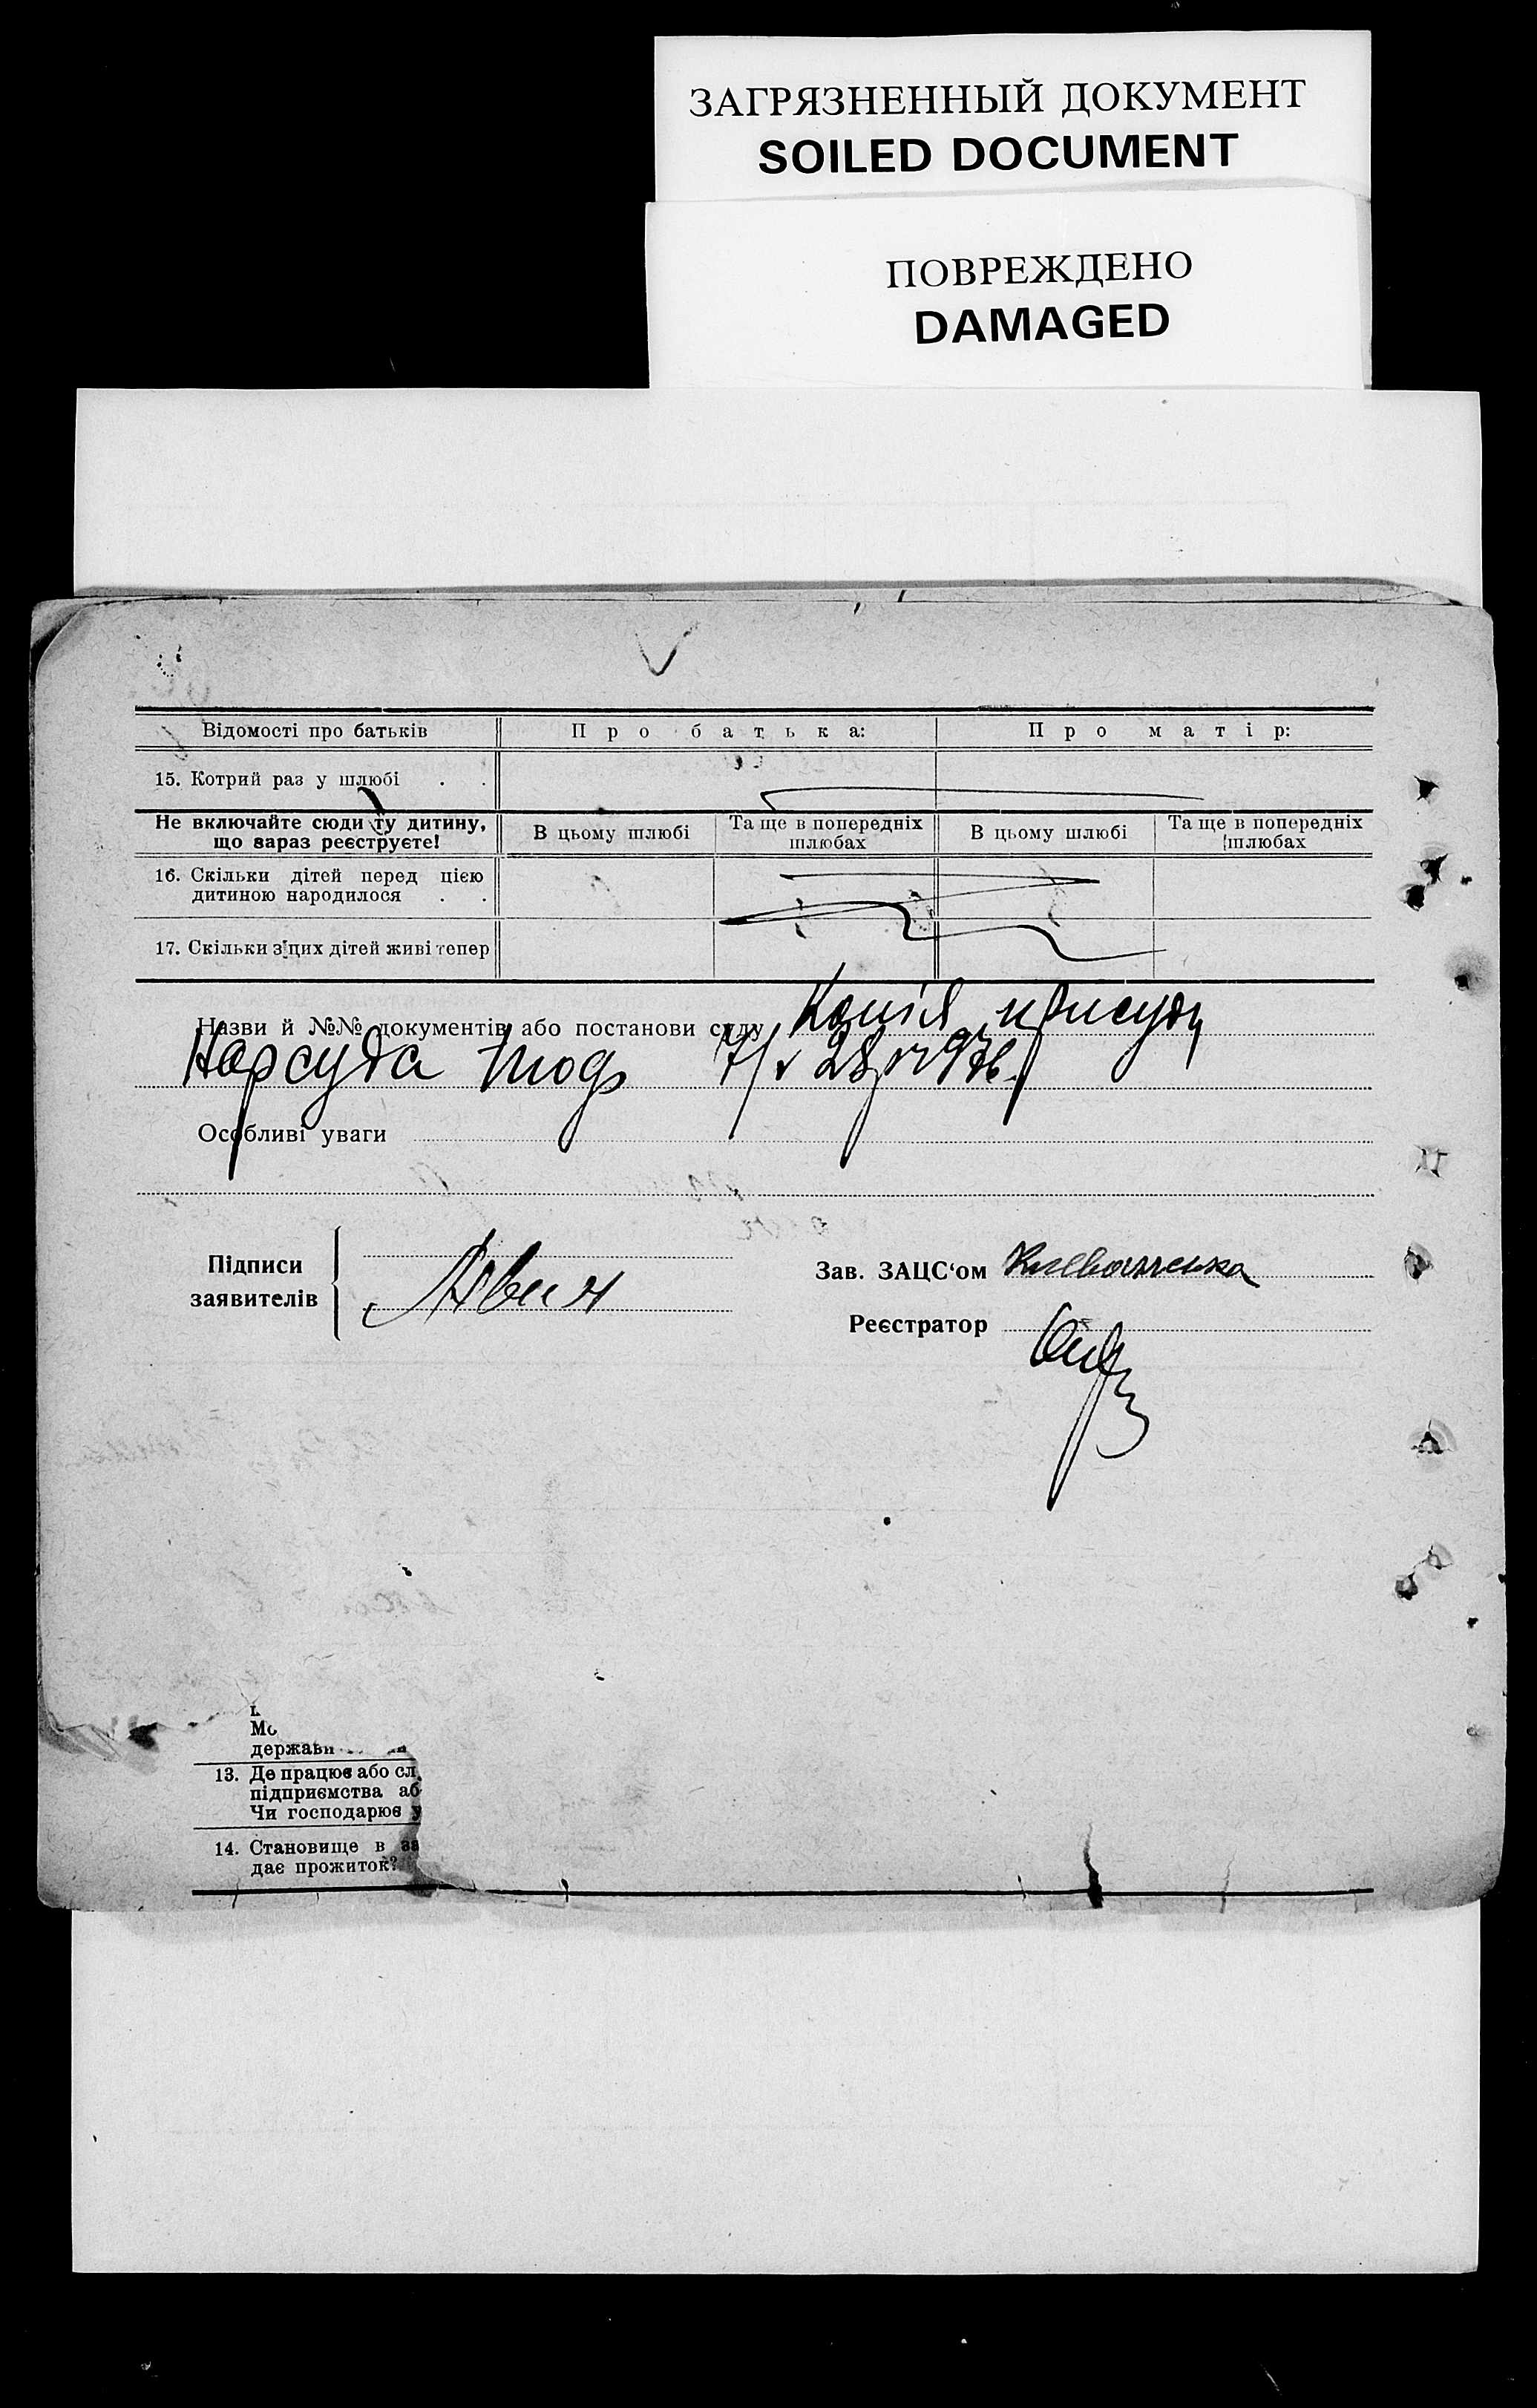 ЗАГРЯЗНЕННЫЙ ДОКУМЕНТ
SOILED DOCUMENT
ПОВРЕЖДЕНО
DAMAGED
Відомості про батьків
Про батька:
Про матір:
15. Котрий раз у шлюбі . .
Не включайте сюди ту дитину,
що зараз реєструєте!
В цьому шлюбі
Та ще в попередніх
шлюбах
В цьому шлюбі
Та ще в попередніх
шлюбах
16. Скільки дітей перед цією
дитиною народилося . .
17. Скільки з цих дітей живі тепер
Назви й №№ документів або постанови суду Копія присуду
Нарсуда
Особливі уваги
Підписи
заявителів
Зав. ЗАЦС'ом
Реєстратор
держави
13. Де працює або сл
підприємства аб
Чи господарює у
14. Становище в за
дає прожиток?